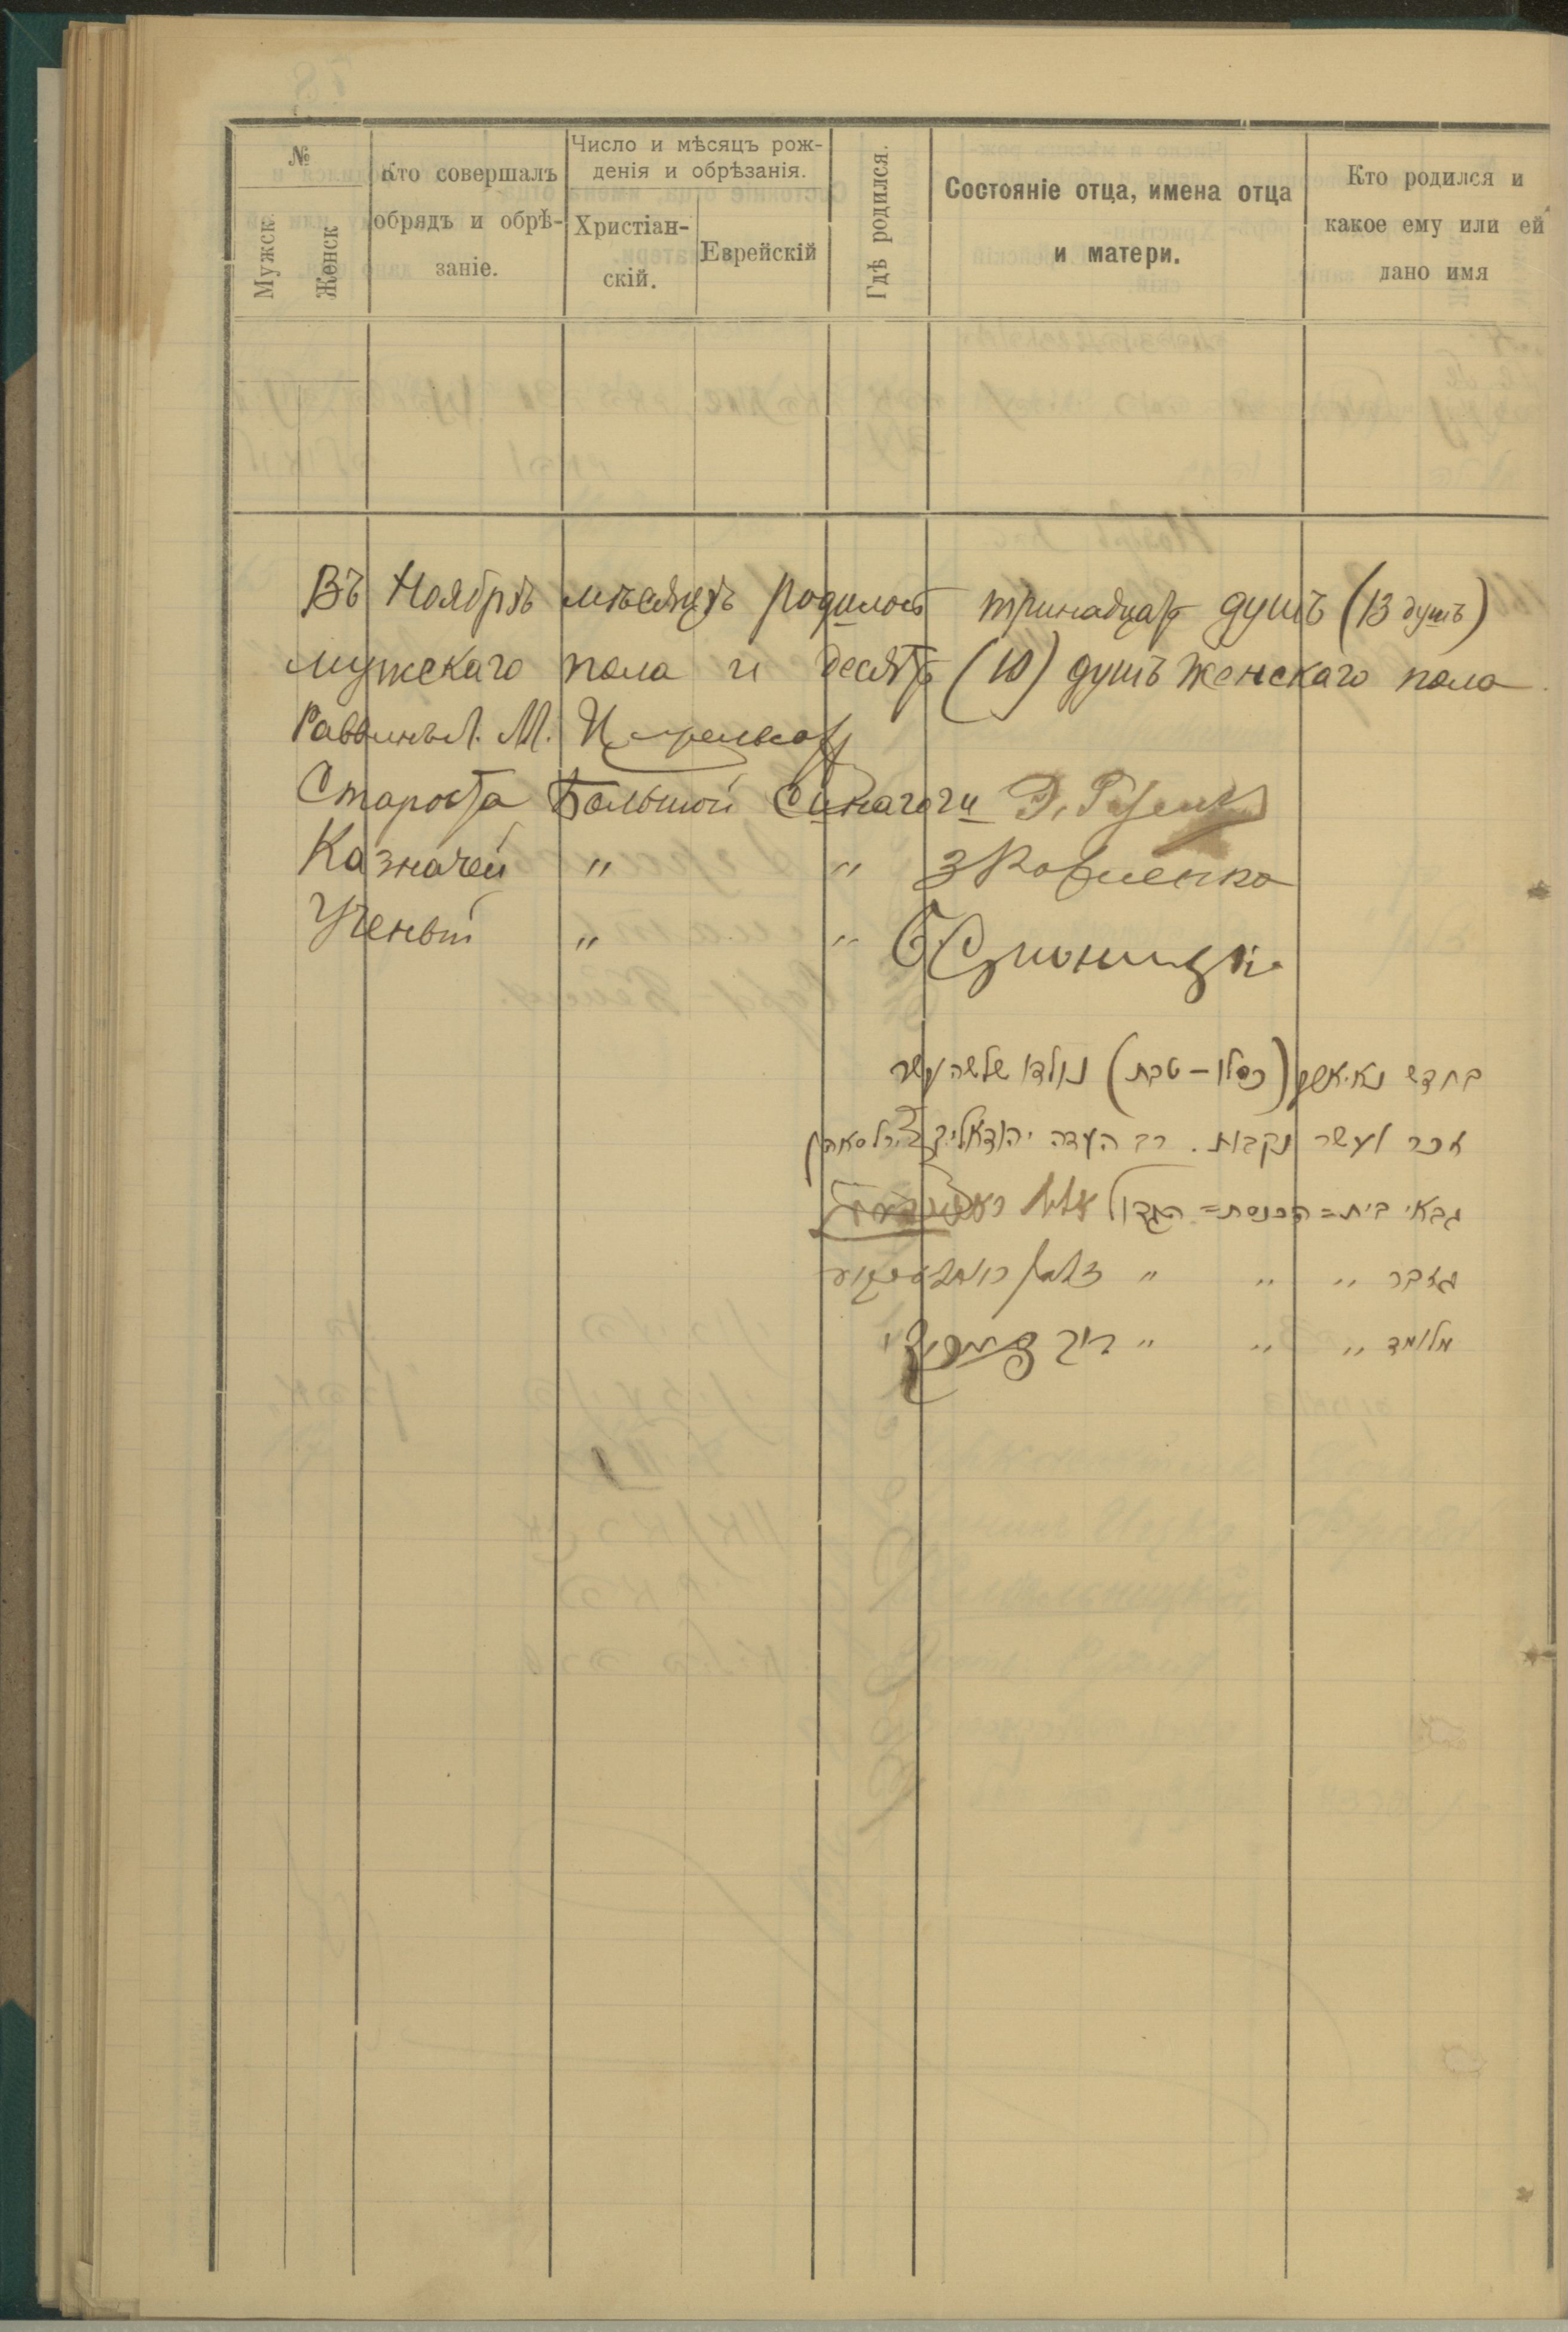 №
Мужск.
Женск
Кто совершалъ
обрядъ и обрѣ-
заніе.
Число и мѣсяцъ рож-
денія и обрѣзанія.
Христіан-
скій.
Еврейскій
Гдѣ родился.
Состояніе отца, имена отца
и матери.
Кто родился и
какое ему или ей
дано имя
Въ Ноябрѣ мѣсяцѣ родилось тринадцать душъ (13 душъ)
мужскаго пола и десять (10) душъ женскаго пола.
Раввинъ Л. М. Цирельсонъ
Староста Большой Синагоги Э.
Казначей " "
Ученый " "
בחדש נאיאבר (כסלו – טבת) נולדו שלשה עשר
זכר ועשר נקבות. רב העדה יהודא ליב צירלסאהן
גבאי בית=הכנסת= הגדול
גזבר " " "
מלומד " " "